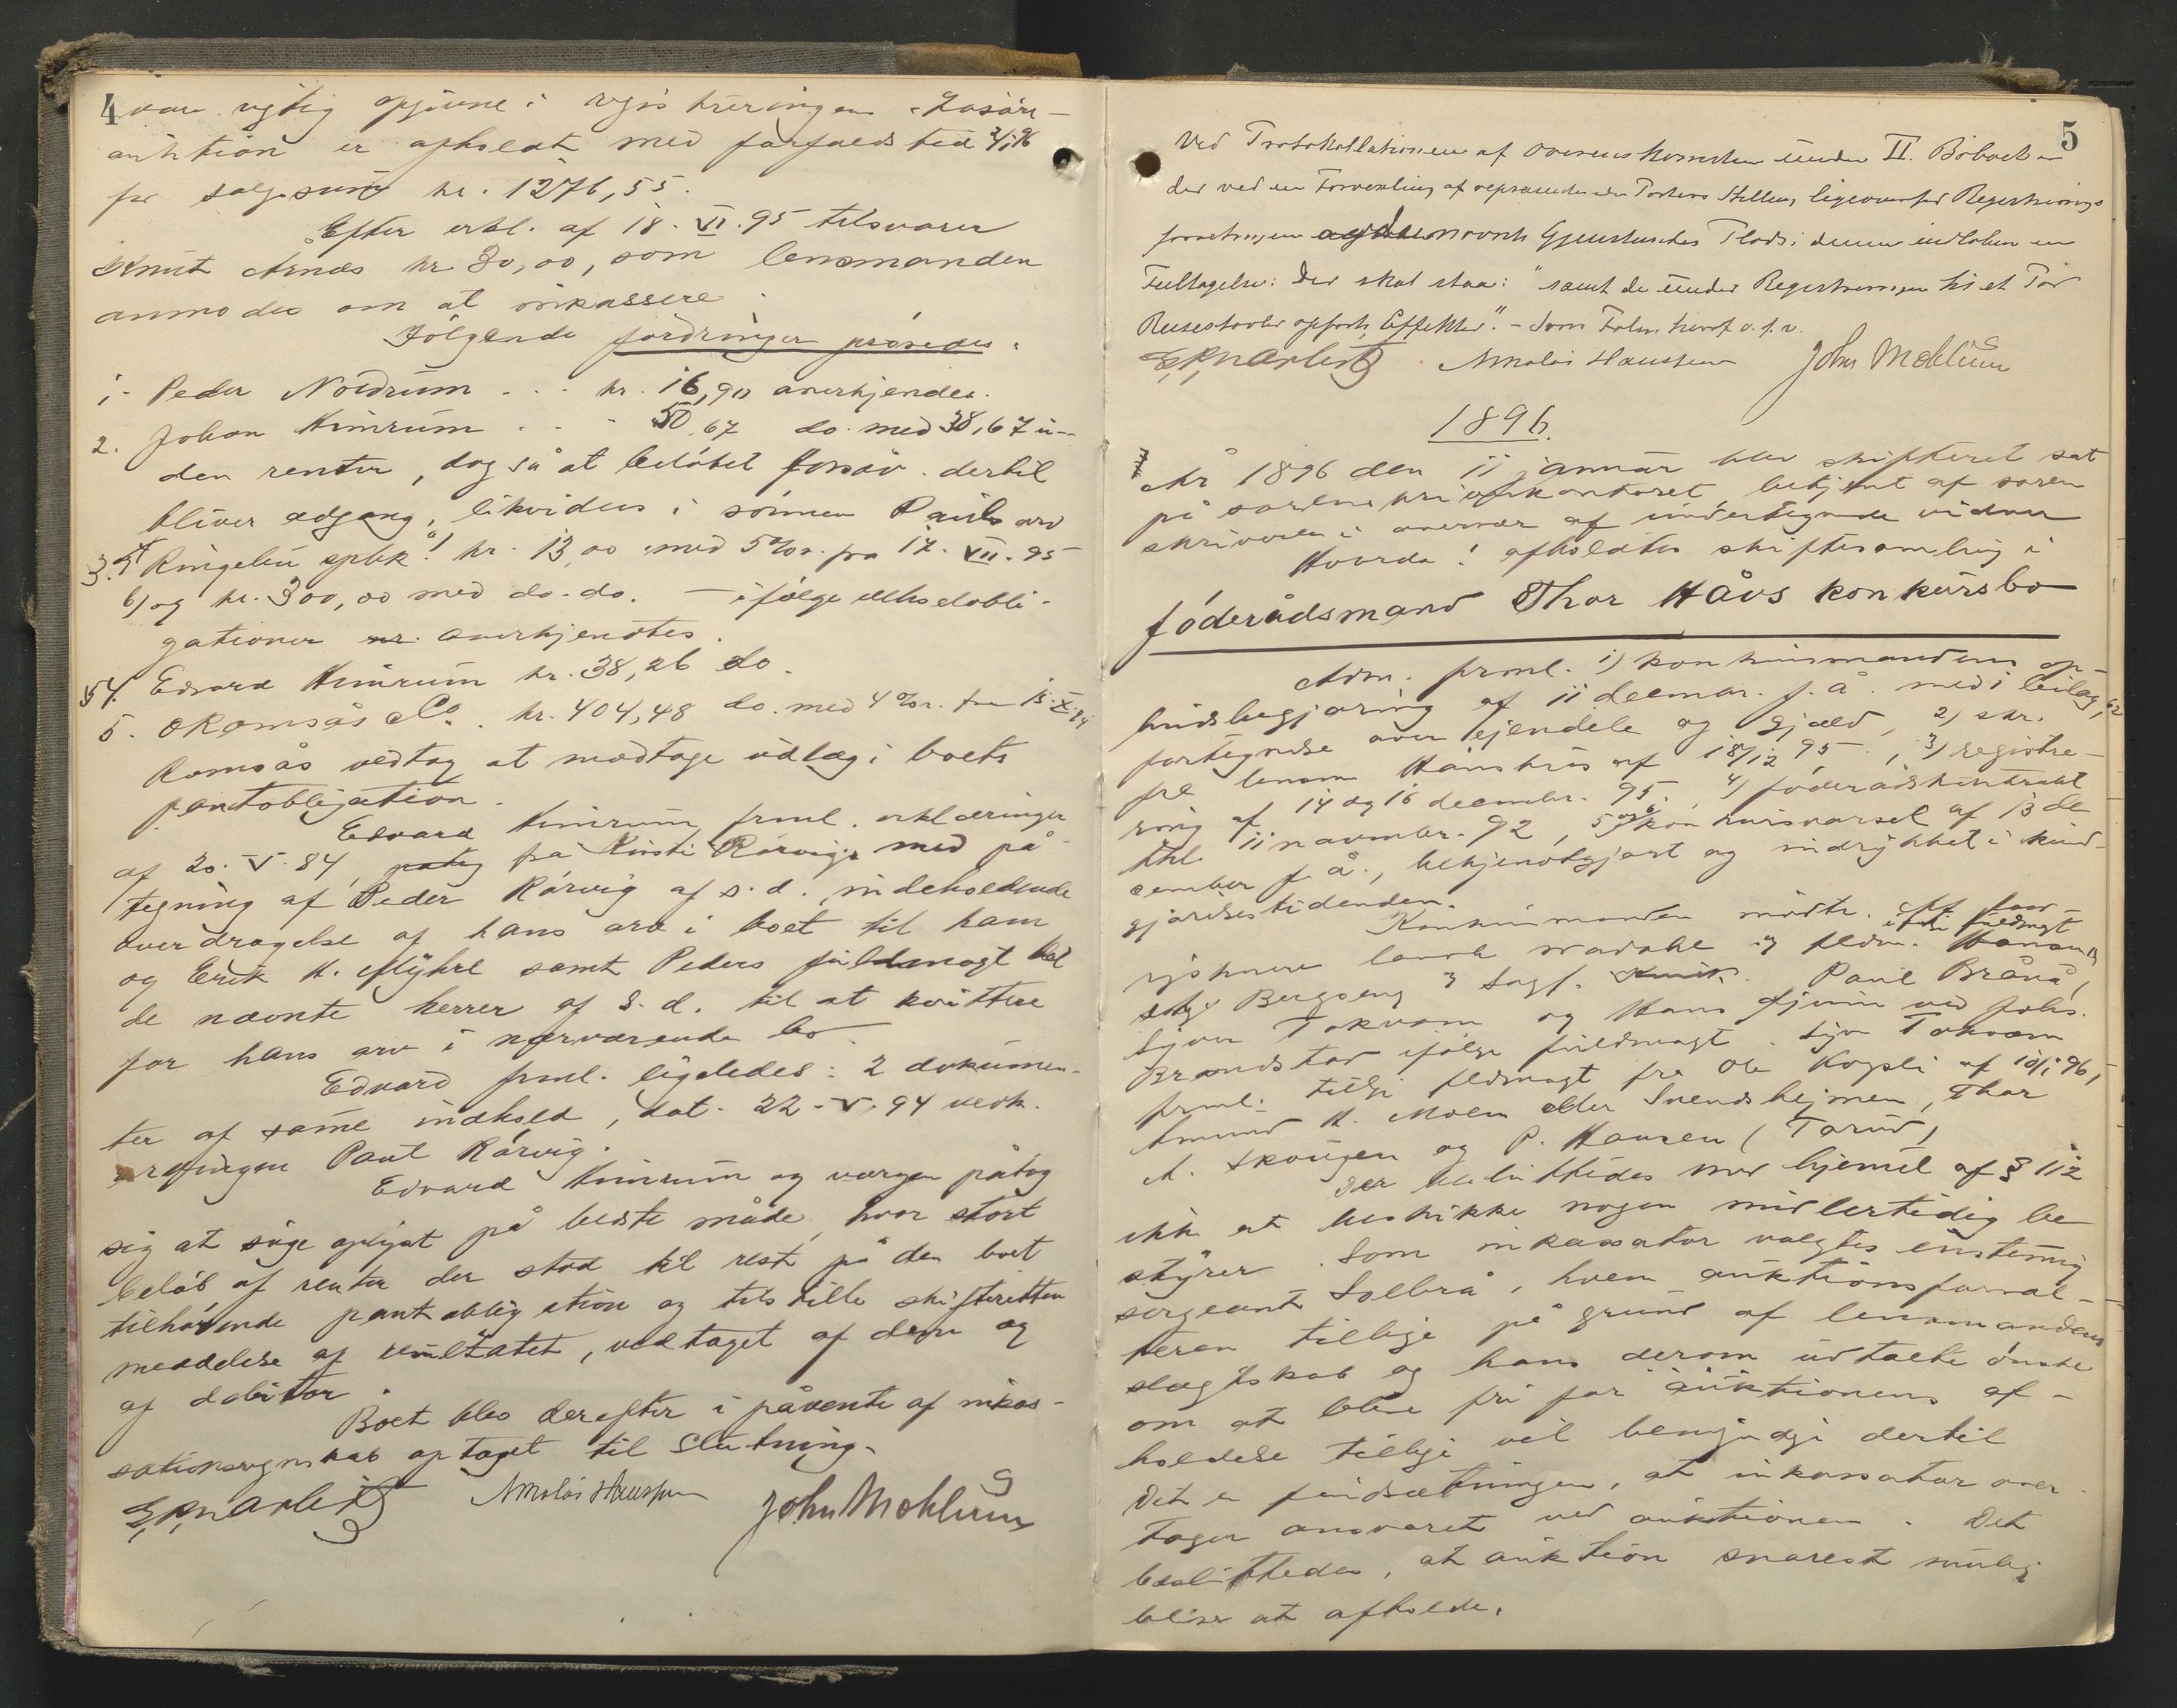 4
var rigtig opgivne i registreringen. Løsøre-
auktion er afholdt med forfaldstid 3/1 96
for salgssum kr. 1276,55.
Efter erkl. af 18. VI. 95 tilsvarer
Knut Årnæs kr 30,00, som lensmanden
anmodes om at inkassere.
Følgende fordringer prøvedes:
1. Peder Nordrum . . . kr. 16,90 anerkjendes.
2. Johan Himrum . . . 50,67 do. med 38,67 u-
den renter, dog så at beløbet forsåv. dertil
bliver adgang, likvideres i sønnen Pauls arv
3. Ringebu spbk. a) kr. 13,00 med 5 % r. fra 17. VII. 95
b) og kr. 300,00 med do. do. – ifølge vekselobli-
gationer anerkjendtes.
4. Edvard Himrum kr. 38,26 do.
5. O Romsås & Co. kr. 404,48 do. med 4 % r. fra
Romsås vedtog at modtage udlæg i boets
pantobligation.
Edvard Himrum frml. erklæringer
af 20. V. 84, fra Kirsti Rørvig med på-
tegning af Peder Rørvig af s. d., indeholdende
overdragelse af hans arv i boet til ham
og Erik H. Myhre samt Peders fuldmagt til
de nævnte herrer af s. d. til at kvittere
for hans arv i nærværende bo.
Edvard frml. ligeledes: 2 dokumen-
ter af samme indhold, dat. 22. V. 94 vedk.
arvingen Paul Rørvig.
Edvard Himrum og værgen påtog
sig at søge oplyst på bedste måde, hvor stort
beløb af renter der stod til rest på den boet
tilhørende pantobligation og tilstille skifteretten
meddelse af resultatet, vedtaget af dem og
af debitor.
Boet blev derefter i påvente af inkas-
sationsregnskab optaget til slutning.
Nikolai Hanssen John Moklum
5
Ved Protokollationen af Overenskomsten under II. Bobert er
der ved en Forvexling af Partens Stilling ligeoverfor Registrerings-
forretningen nævnte Gjenstandes Plads i denne indløben en
Feiltagelse: Der skal staa: "samt de under Registreringen til et Par
Reisestøvler opførte Effekter". – Som
Nikolai Hanssen John Moklum
1896.
År 1896 den 11 januar blev skifteret sat
på sorenskriverkontoret, betjent af soren
skriveren i overvær af undertegnede vidner
Hvorda: afholdtes skiftesamling i
føderådsmand Thor Håvs konkursbo
Adm. frml. 1) konkursmandens op-
budsbegjæring af 11 decmbr. f. å. med 1 bilag,
fortegnelse over ejendele og gjæld, 2) skr.
fra lensm. af 18/12 95, 3) registre-
ring af 14 og 16 decembr. 95, 4) føderådskontrakt
thl. 11 novmbr. 92, 5) konkursvarsel af 13 de
cember f. å., bekjendtgjort og indrykket i kund-
gjørelsestidenden.
Konkursmanden mødte. Af for-
Bergseng Paul Brånå,
Sjver Tokvam og Hans ved Johs.
Brandstad ifølge fuldmagt. Sjver Tokvam
frml. tillige fldmagt fra Ole Kopsli af 10/1 96,
Amund H. Moen eller Svendshejmen, Thor
A. Skougen og P. Hansen (Tarud)
Der besluttedes med hjemel af § 112
ikke at beskikke nogen midlertidig be
styrer. Som inkassator valgtes enstemmig
sergeant Solbrå, hvem auktionsforval-
teren tillige på grund af lensmandens
slægtskab og hans derom udtalte ønske
om at blive fri for auktionens af-
holdelse tillige vil benytte dertil
Det er forudsætningen, at inkassator over
tager ansvaret ved auktionen. Det
besluttedes, at auktion snarest mulig
bliver at afholde.